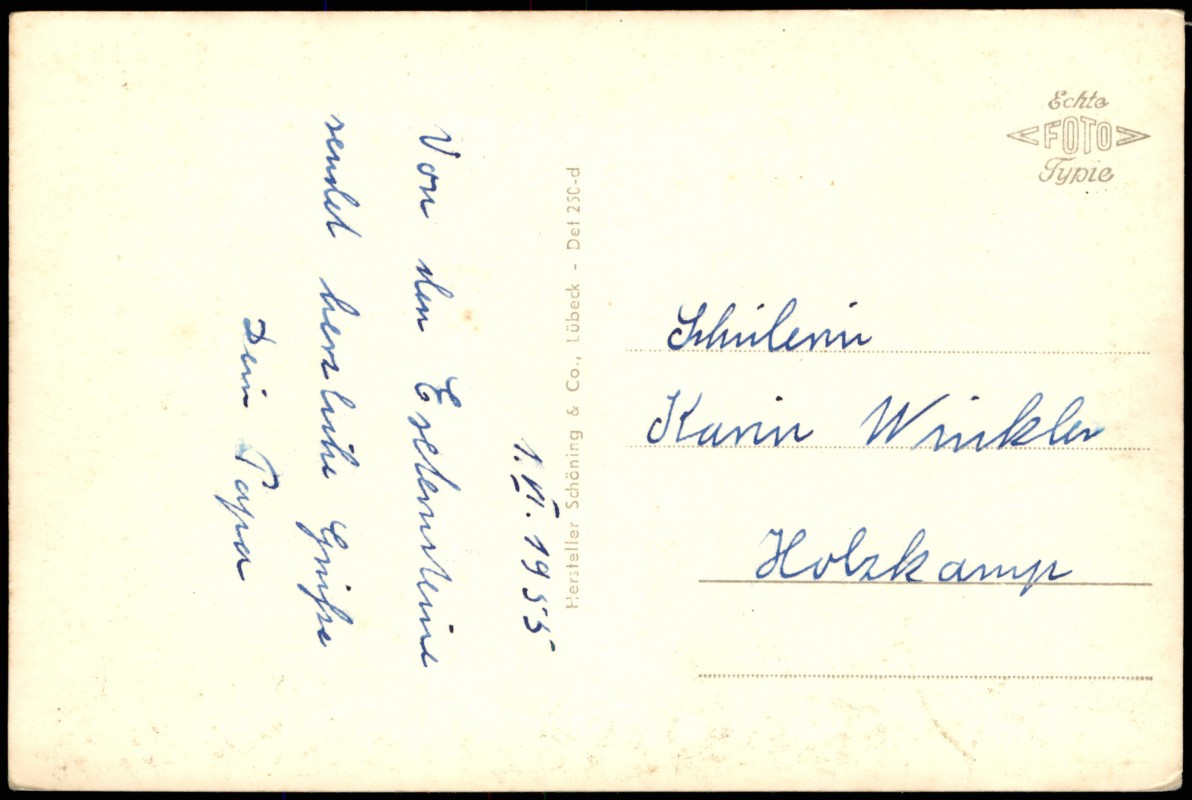 1.VI.1955
Von den Externsteine
sendet herzliche Grüße
Dein Papa
Hersteller Schöning & Co., Lübeck - Det 250-d
Echte
FOTO
Typie
Schülerin
Karin Winkler
Holzkamp